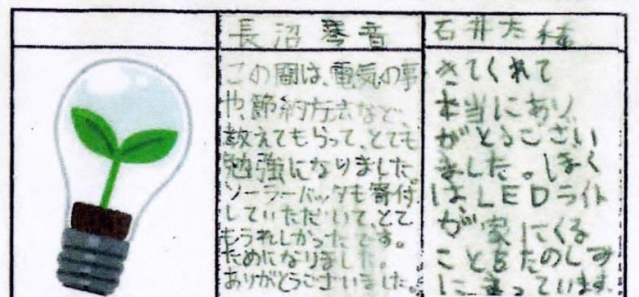 長沼琴音
この間は、電気の事
や、節約方法など、
教えてもらって、とても
勉強になりました。
ソーラーバッタも寄付
していただいて、とて
もうれしかったです。
ためになりました。
ありがとうございました。
石井
きてくれて
本当にあり
がとうござい
ました。ぼく
はLEDライト
が家にくる
ことをたのしみ
にまっています。